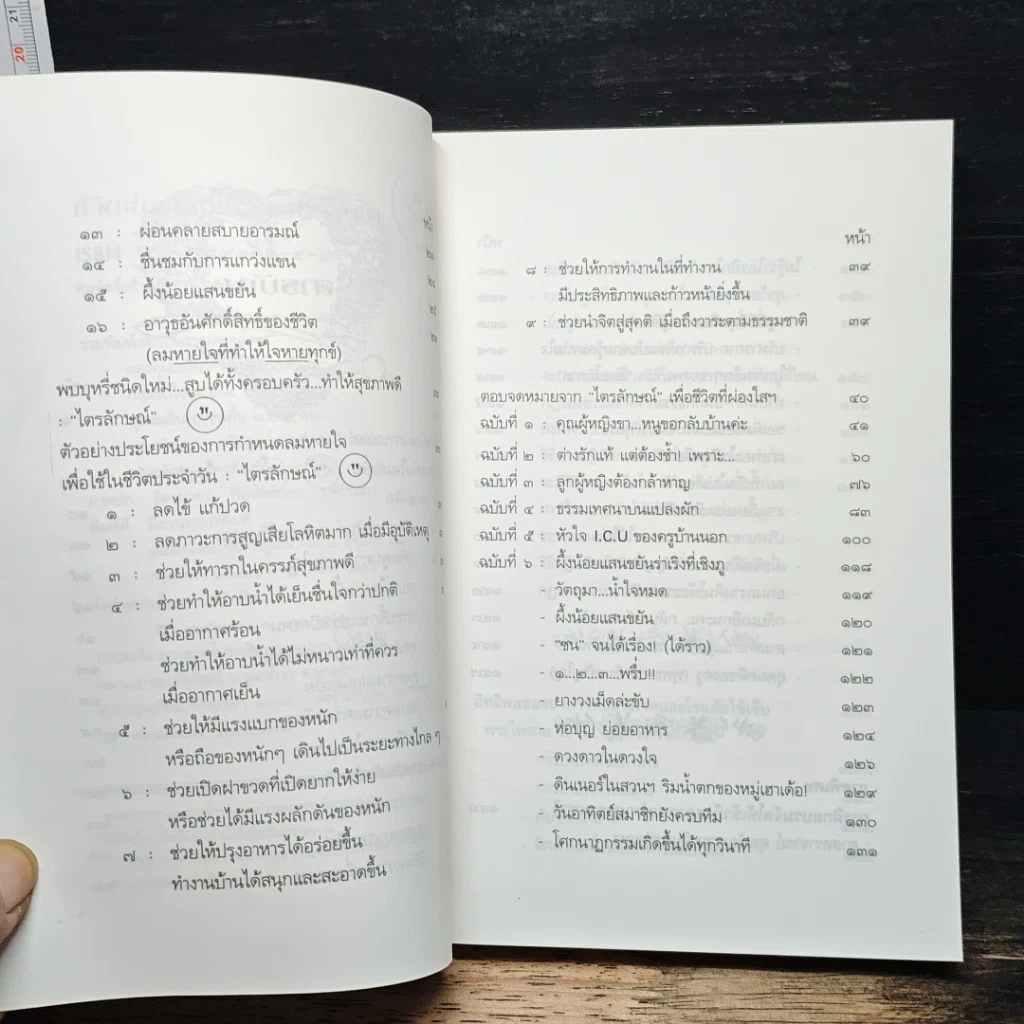 21
20
หน้า
๑๓ : ผ่อนคลายสบายอารมณ์
๑๔ : ชื่นชมกับการแกว่งแขน
๑๕ : ผึ้งน้อยแสนขยัน
๑๖ : อาวุธอันศักดิ์สิทธิ์ของชีวิต
(ลมหายใจที่ทำให้ใจหายทุกข์)
พบบุหรี่ชนิดใหม่...สูบได้ทั้งครอบครัว...ทำให้สุขภาพดี
: "ไตรลักษณ์"
ตัวอย่างประโยชน์ของการกำหนดลมหายใจ
เพื่อใช้ในชีวิตประจำวัน : "ไตรลักษณ์"
๑ : ลดไข้ แก้ปวด
๒ : ลดภาวะการสูญเสียโลหิตมาก เมื่อมีอุบัติเหตุ
๓ : ช่วยให้ทารกในครรภ์สุขภาพดี
๔ : ช่วยทำให้อาบน้ำได้เย็นชื่นใจกว่าปกติ
เมื่ออากาศร้อน
ช่วยทำให้อาบน้ำได้ไม่หนาวเท่าที่ควร
เมื่ออากาศเย็น
๕ : ช่วยให้มีแรงแบกของหนัก
หรือถือของหนักๆ เดินไปเป็นระยะทางไกล ๆ
๖ : ช่วยเปิดฝาขวดที่เปิดยากให้ง่าย
หรือช่วยได้มีแรงผลักดันของหนัก
๗ : ช่วยให้ปรุงอาหารได้อร่อยขึ้น
ทำงานบ้านได้สนุกและสะอาดขึ้น
หน้า
๘ : ช่วยให้การทำงานในที่ทำงาน ๓๙
มีประสิทธิภาพและก้าวหน้ายิ่งขึ้น
๙ : ช่วยนำจิตสู่สุคติ เมื่อถึงวาระตามธรรมชาติ ๓๙
ตอบจดหมายจาก "ไตรลักษณ์" เพื่อชีวิตที่ผ่องใสฯ ๔๐
ฉบับที่ ๑ : คุณผู้หญิงขา...หนูขอกลับบ้านค่ะ ๔๑
ฉบับที่ ๒ : ต่างรักแท้ แต่ต้องช้ำ! เพราะ... ๖๐
ฉบับที่ ๓ : ลูกผู้หญิงต้องกล้าหาญ ๗๖
ฉบับที่ ๔ : ธรรมเทศนาบนแปลงผัก ๘๓
ฉบับที่ ๕ : หัวใจ I.C.U ของครูบ้านนอก ๑๐๐
ฉบับที่ ๖ : ผึ้งน้อยแสนขยันร่าเริงที่เชิงภู ๑๑๘
- วัตถุมา...น้ำใจหมด ๑๑๙
- ผึ้งน้อยแสนขยัน ๑๒๐
- "ชน" จนได้เรื่อง! (ได้ราว) ๑๒๑
- ๑...๒...๓...พรึ่บ!! ๑๒๒
- ยางวงเม็ดล่ะขับ ๑๒๓
- ห่อบุญ ย่อยอาหาร ๑๒๔
- ดวงดาวในดวงใจ ๑๒๖
- ดินเนอร์ในสวนฯ ริมน้ำตกของหมู่เฮาเด้อ! ๑๒๙
- วันอาทิตย์สมาชิกยังครบทีม ๑๓๐
- โศกนาฏกรรมเกิดขึ้นได้ทุกวินาที ๑๓๑